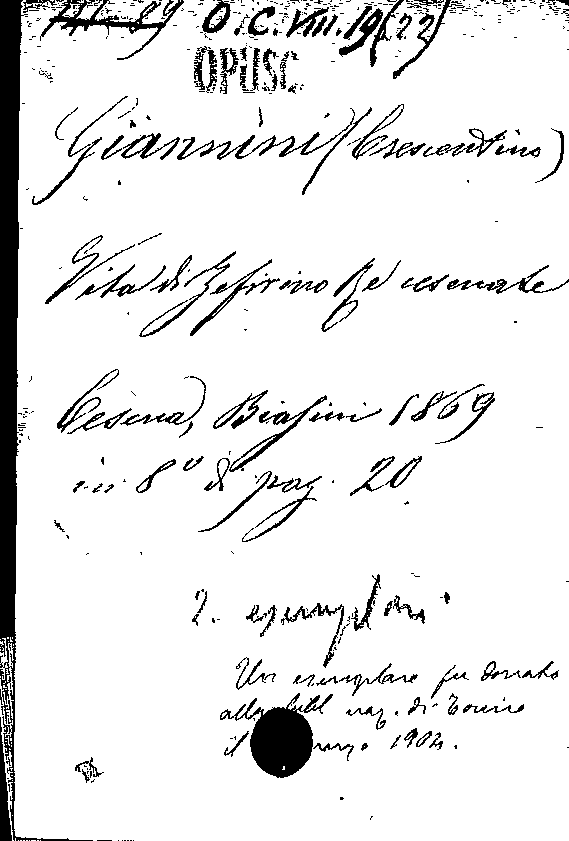 O.C.VIII.19(22)
OPUSC.
Giannini (Crescentino)
Vita di Zefirino Re cesenate
Cesena, Biasini 1869
in 8° di pag. 20
2. esemplari
Un esemplare fu donato
alla bibl. naz. di Torino
il marzo 1904.